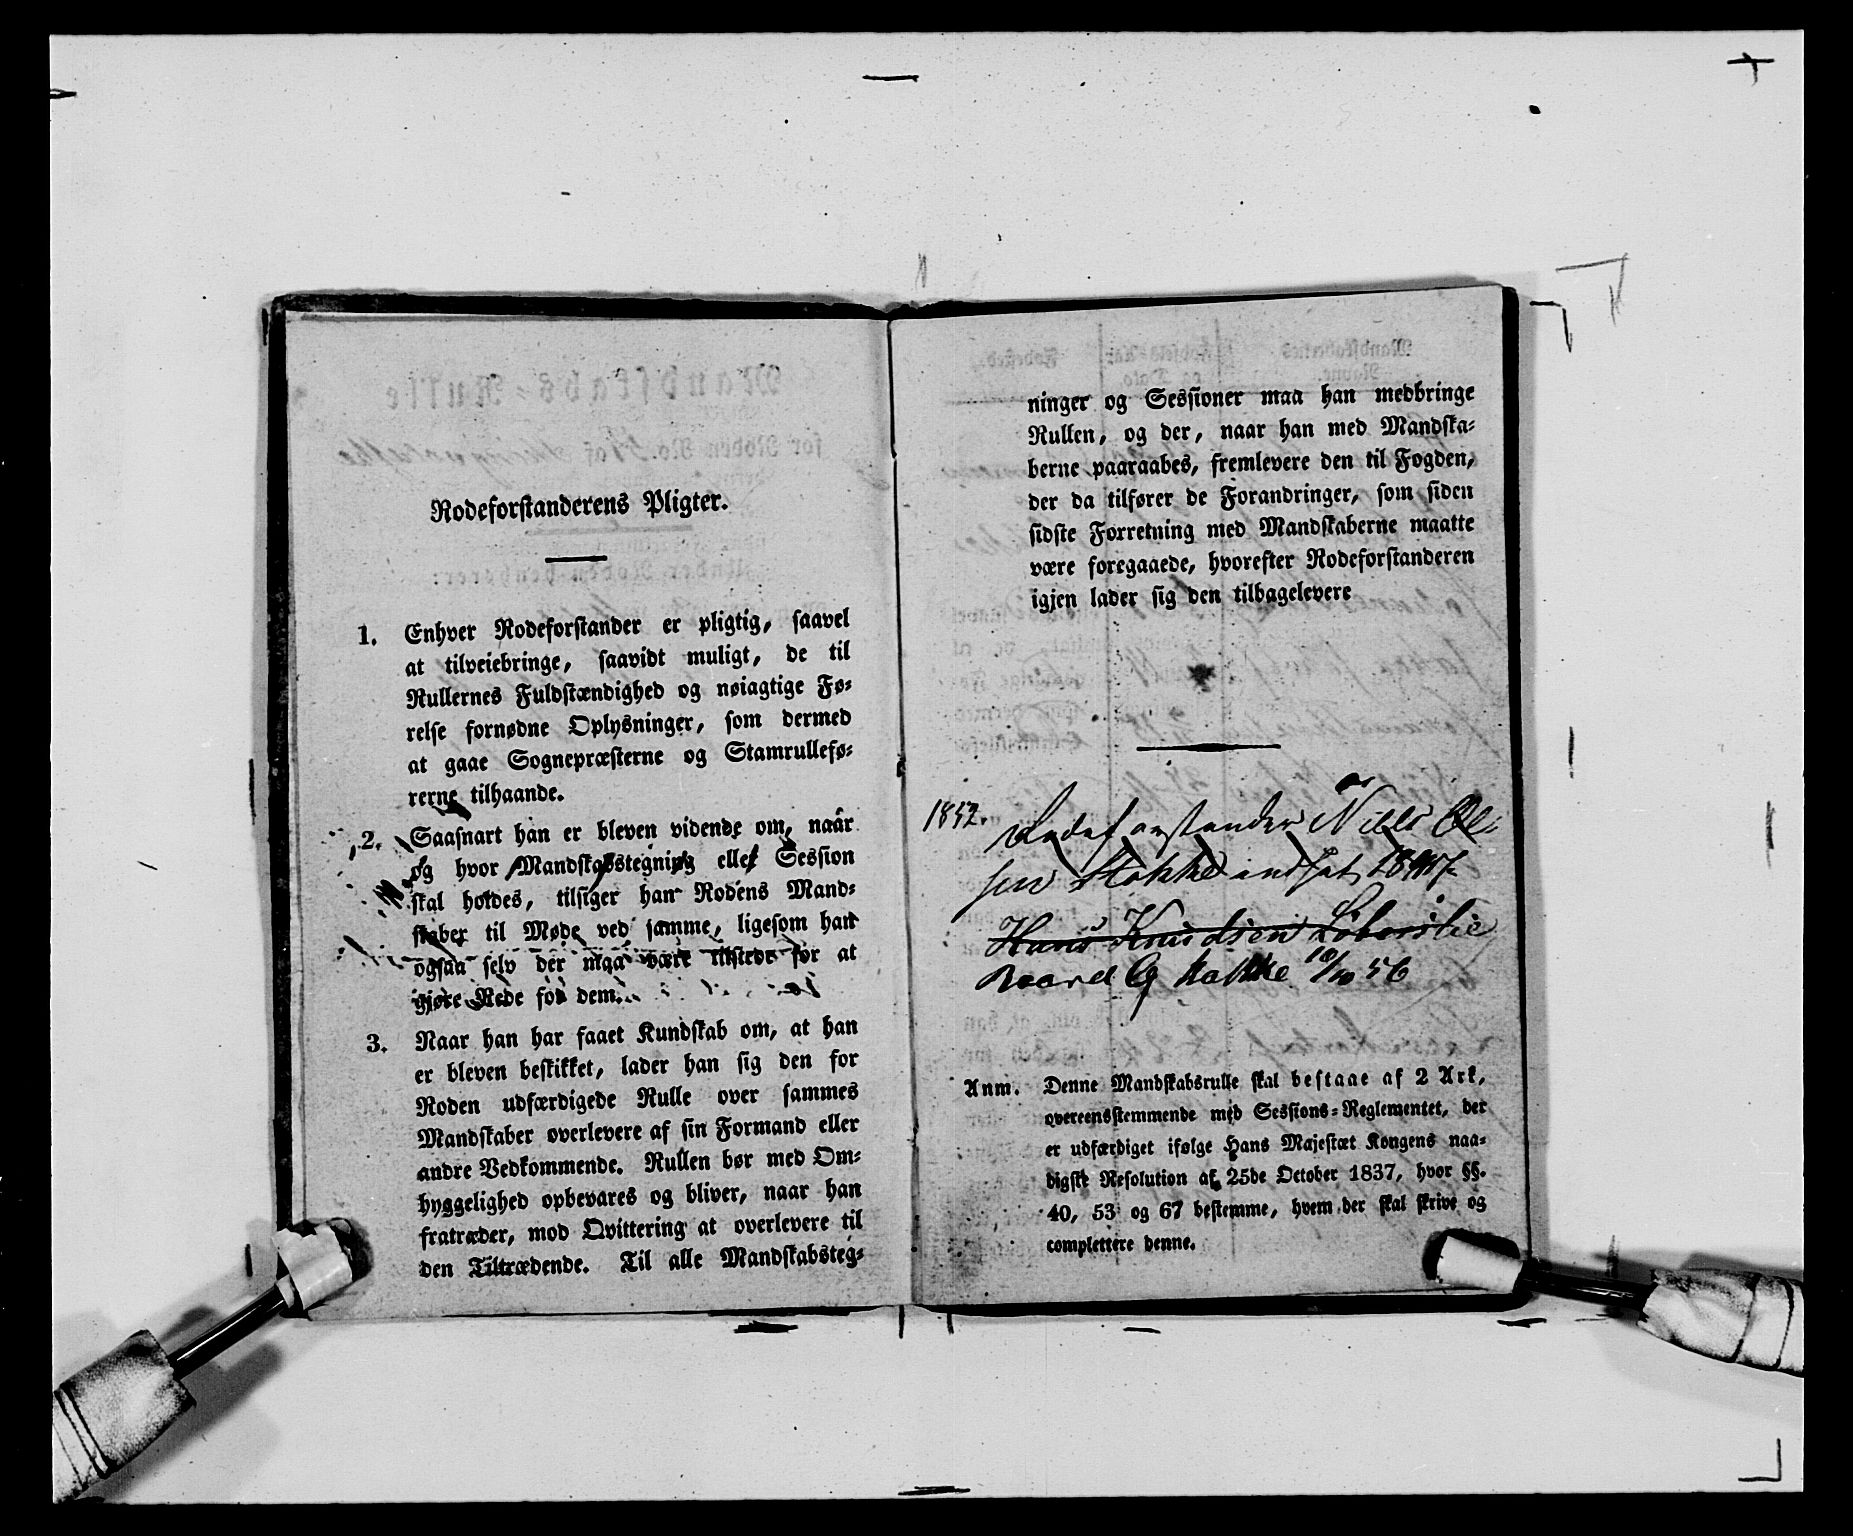 Rodeforstanderens Pligter.
1. Enhver Rodeforstander er pligtig, saavel
at tilveiebringe, saavidt muligt, de til
Rullernes Fuldstændighed og nøiagtige Fø-
relse fornødne Oplysninger, som dermed
at gaae Sognepræsterne og Stamrullefø-
rerne tilhaande.
2. Saasnart han er bleven vidende om, naar
og hvor Mandskabstegning eller Session
skal holdes, tilsiger han Rodens Mand-
skaber til Møde ved samme, ligesom han
ogsaa selv der maa være tilstede for at
gjøre Rede for dem.
3. Naar han har faaet Kundskab om, at han
er bleven beskikket, lader han sig den for
Roden udfærdigede Rulle over sammes
Mandskaber overlevere af sin Formand eller
andre Vedkommende. Rullen bør med Om-
hyggelighed opbevares og bliver, naar han
fratræder, mod Qvittering at overlevere til
den Tiltrædende. Til alle Mandskabsteg-
ninger og Sessioner maa han medbringe
Rullen, og der, naar han med Mandska-
berne paaraabes, fremlevere den til Fogden,
der da tilfører de Forandringer, som siden
sidste Forretning med Mandskaberne maatte
være foregaaede, hvorefter Rodeforstanderen
igjen lader sig den tilbagelevere
1852. Rodeforstander Niels Ol-
sen Stokke indsat
Hans Knudsen
Stokke 10/10 56
Anm. Denne Mandskabsrulle skal bestaae af 2 Ark,
overeensstemmende med Sessions-Reglementet, der
er udfærdiget ifølge Hans Majestæt Kongens naa-
digste Resolution af 25de October 1837, hvor §§.
40, 53 og 67 bestemme, hvem der skal skrive og
complettere denne.